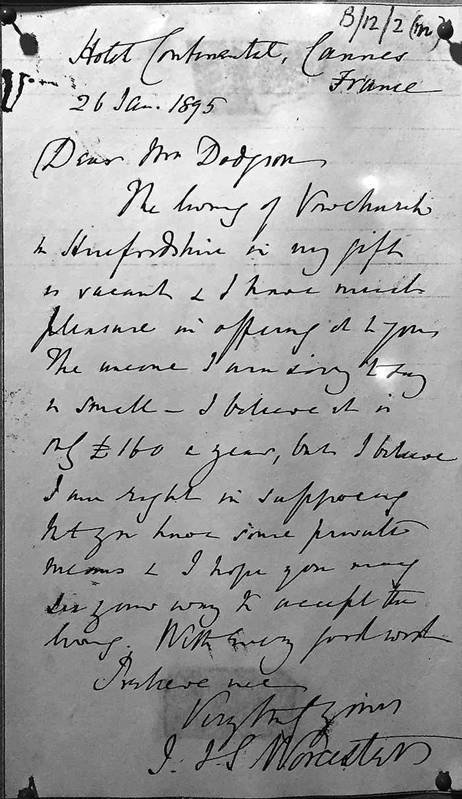 B/12/2 (m)
Hotel Continental, Cannes
France
26 Jan. 1895
Dear Mr Dodgson
The living of Vowchurch
in Herefordshire in my gift
is vacant & I have much
pleasure in offering it to you
The income I am sorry to say
is small – I believe it is
only £160 a year, but I believe
I am right in supposing
that you have some private
means & I hope you may
see your way to accept the
living. With every good wish
Believe me
Very truly yours
J. J. S. Worcester